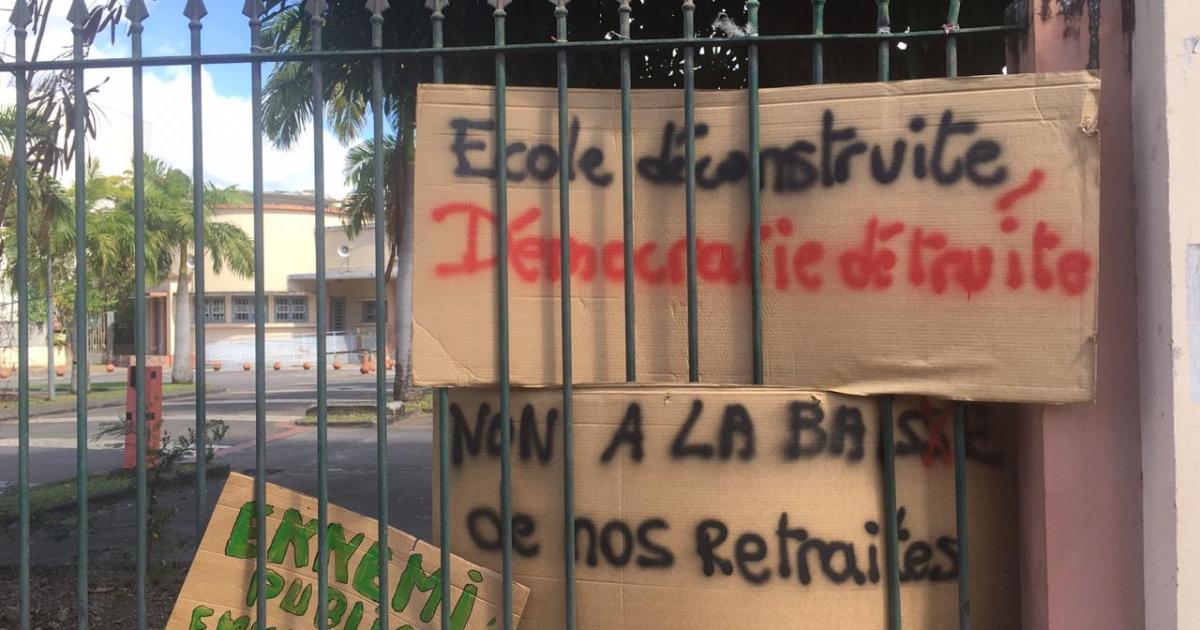 Ecole déconstruite
Démocratie détruite
NON A LA BAISSE
de nos Retraites
ENNEMI
PUBLIC